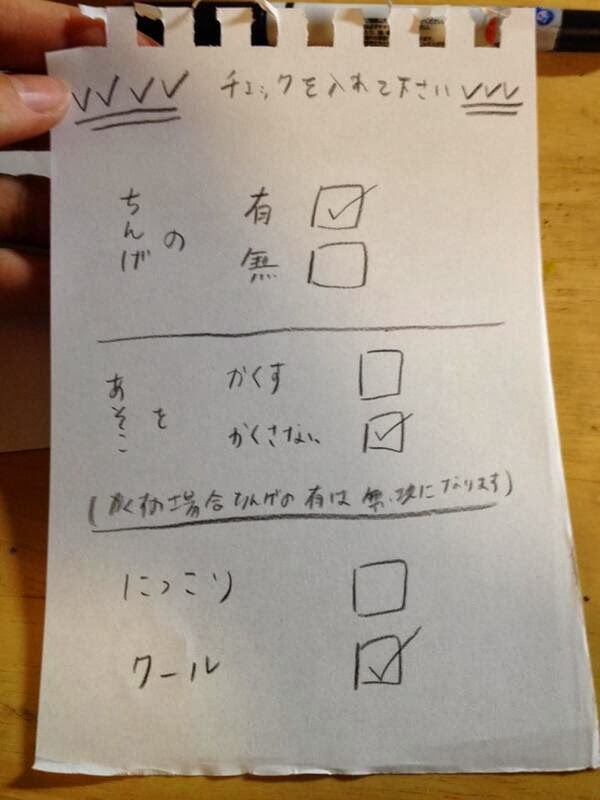 ✓✓✓✓ チェックを入れて下さい ✓✓✓
ちんげの 有 ☑
無 □
あそこを かくす □
かくさない ☑
(かくす場合ちんげの有は無効になります)
にっこり □
クール ☑